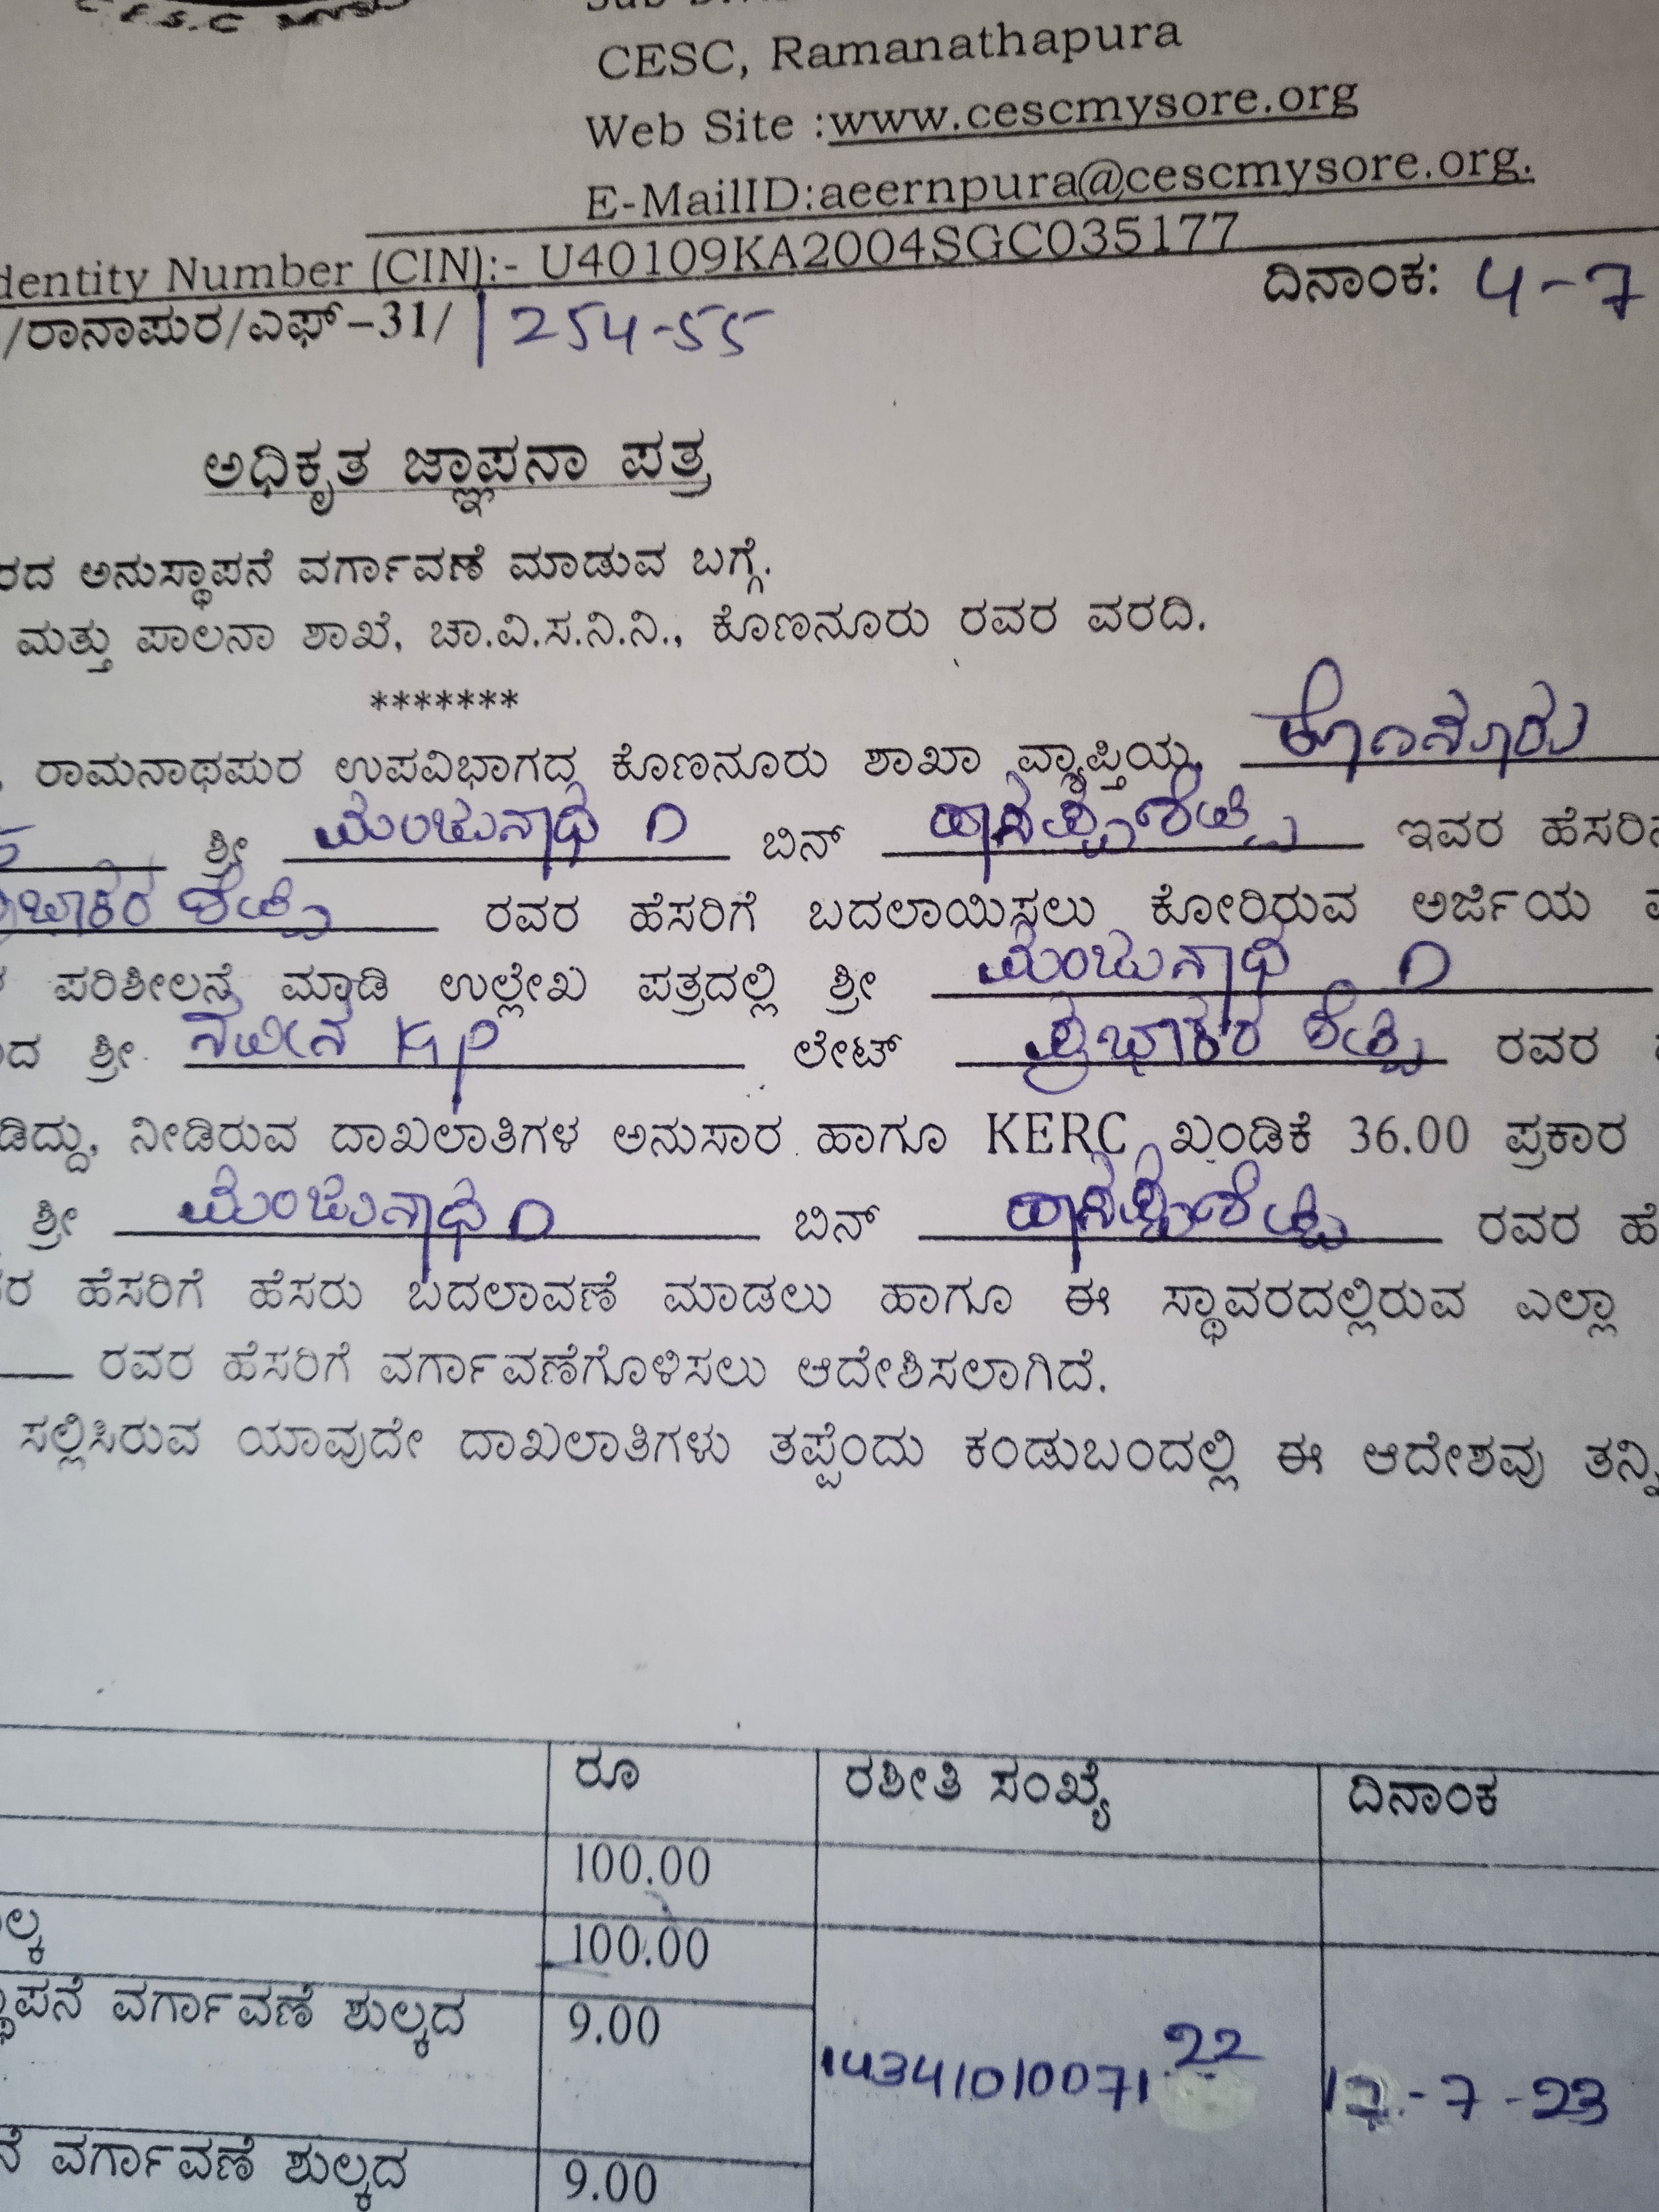 C.E.S.C
CESC, Ramanathapura
Web Site :www.cescmysore.org
E-MailID:aeernpura@cescmysore.org.
dentity Number (CIN):- U40109KA2004SGC035177
/ರಾನಾಪುರ/ಎಫ್-31/ 1254-55 ದಿನಾಂಕ: 4-7
ಅಧಿಕೃತ ಜ್ಞಾಪನಾ ಪತ್ರ
ರದ ಅನುಸ್ಥಾಪನೆ ವರ್ಗಾವಣೆ ಮಾಡುವ ಬಗ್ಗೆ.
ಮತ್ತು ಪಾಲನಾ ಶಾಖೆ, ಚಾ.ವಿ.ಸ.ನಿ.ನಿ., ಕೊಣನೂರು ರವರ ವರದಿ.
*******
, ರಾಮನಾಥಪುರ ಉಪವಿಭಾಗದ ಕೊಣನೂರು ಶಾಖಾ ವ್ಯಾಪ್ತಿಯ ಕೊಣನೂರು
ಶ್ರೀ ಮಂಜುನಾಥ D ಬಿನ್ ಇವರ ಹೆಸರಿನ
ಪ್ರಭಾಕರ ಶೆಟ್ಟಿ ರವರ ಹೆಸರಿಗೆ ಬದಲಾಯಿಸಲು ಕೋರಿರುವ ಅರ್ಜಿಯ
ಪರಿಶೀಲನೆ ಮಾಡಿ ಉಲ್ಲೇಖ ಪತ್ರದಲ್ಲಿ ಶ್ರೀ ಮಂಜುನಾಥ D
ದ ಶ್ರೀ. ನವೀನ KP ಲೇಟ್ ಪ್ರಭಾಕರ ಶೆಟ್ಟಿ ರವರ
ಡಿದ್ದು, ನೀಡಿರುವ ದಾಖಲಾತಿಗಳ ಅನುಸಾರ ಹಾಗೂ KERC ಖಂಡಿಕೆ 36.00 ಪ್ರಕಾರ
ಶ್ರೀ ಮಂಜುನಾಥ D ಬಿನ್ ರವರ ಹೆ
ರ ಹೆಸರಿಗೆ ಹೆಸರು ಬದಲಾವಣೆ ಮಾಡಲು ಹಾಗೂ ಈ ಸ್ಥಾವರದಲ್ಲಿರುವ ಎಲ್ಲಾ
ರವರ ಹೆಸರಿಗೆ ವರ್ಗಾವಣೆಗೊಳಿಸಲು ಆದೇಶಿಸಲಾಗಿದೆ.
ಸಲ್ಲಿಸಿರುವ ಯಾವುದೇ ದಾಖಲಾತಿಗಳು ತಪ್ಪೆಂದು ಕಂಡುಬಂದಲ್ಲಿ ಈ ಆದೇಶವು ತನ್ನಿ
ರೂ ರಶೀತಿ ಸಂಖ್ಯೆ ದಿನಾಂಕ
100.00
ಲ್ಕ 100.00
ಸ್ಥಾಪನೆ ವರ್ಗಾವಣೆ ಶುಲ್ಕದ 9.00
1434101007122 17-7-23
ನೆ ವರ್ಗಾವಣೆ ಶುಲ್ಕದ 9.00